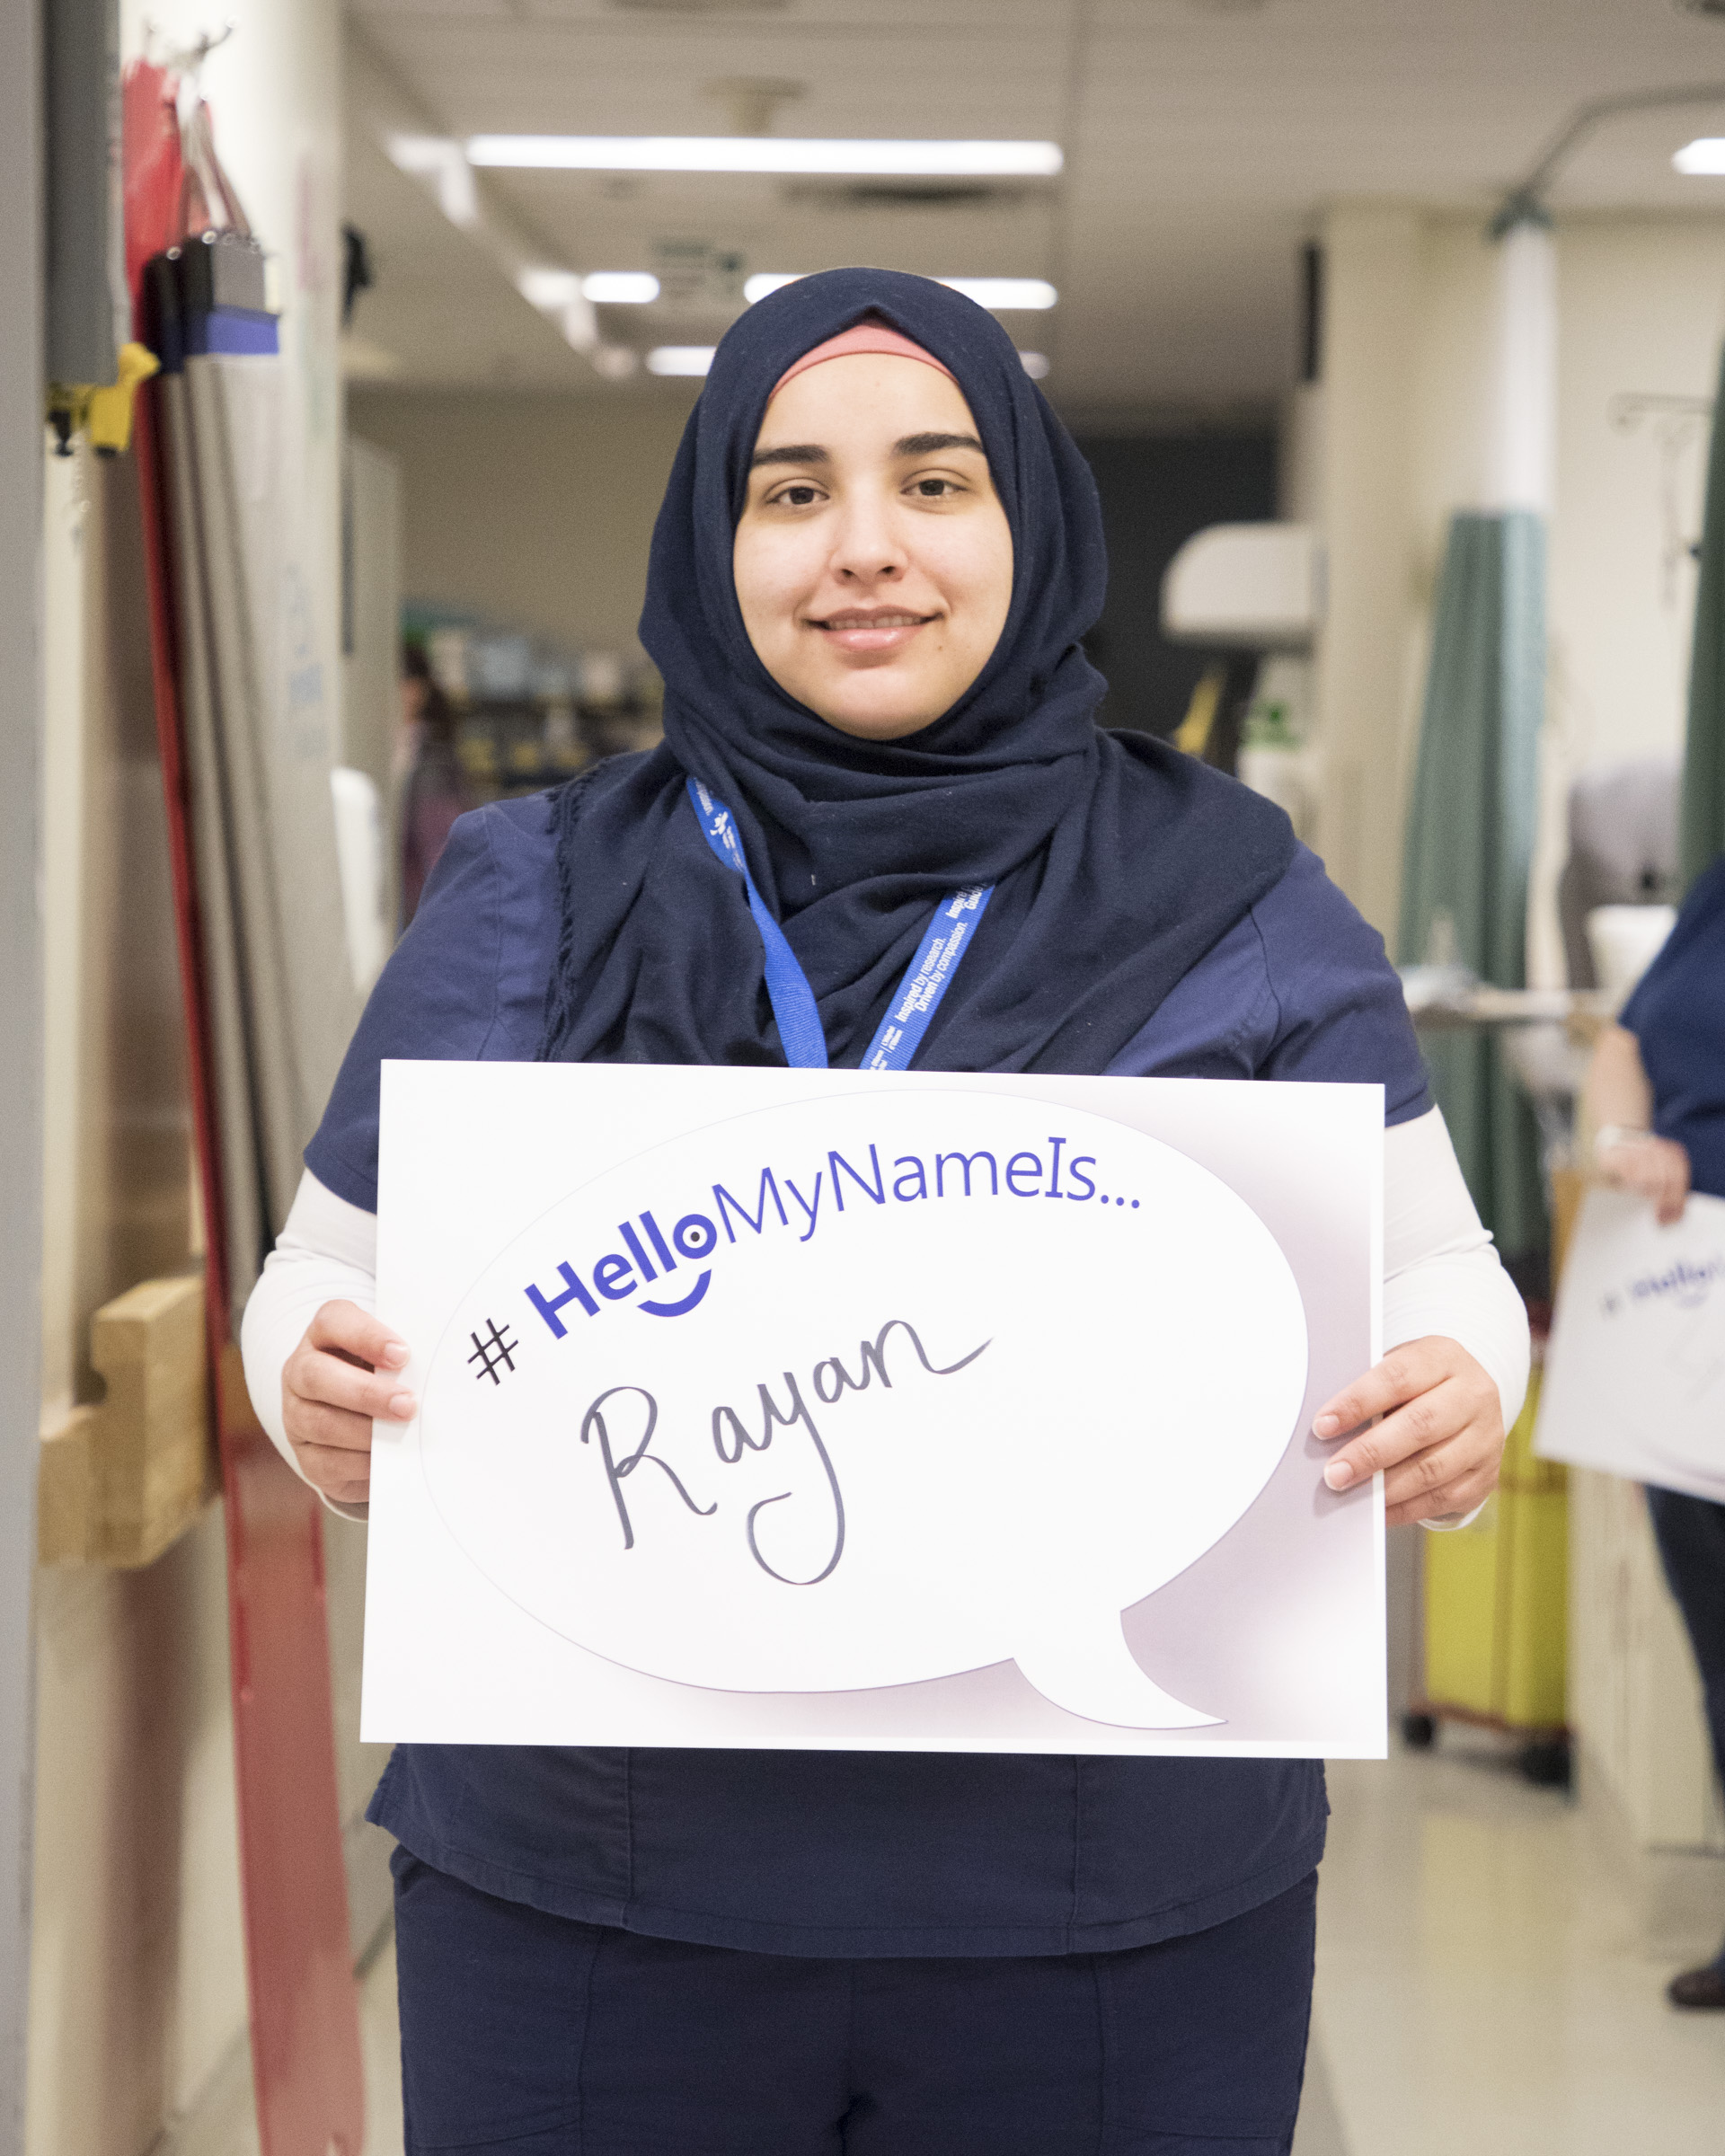 Inspired by research.
Driven by compassion.
#HelloMyNameIs...
Rayan